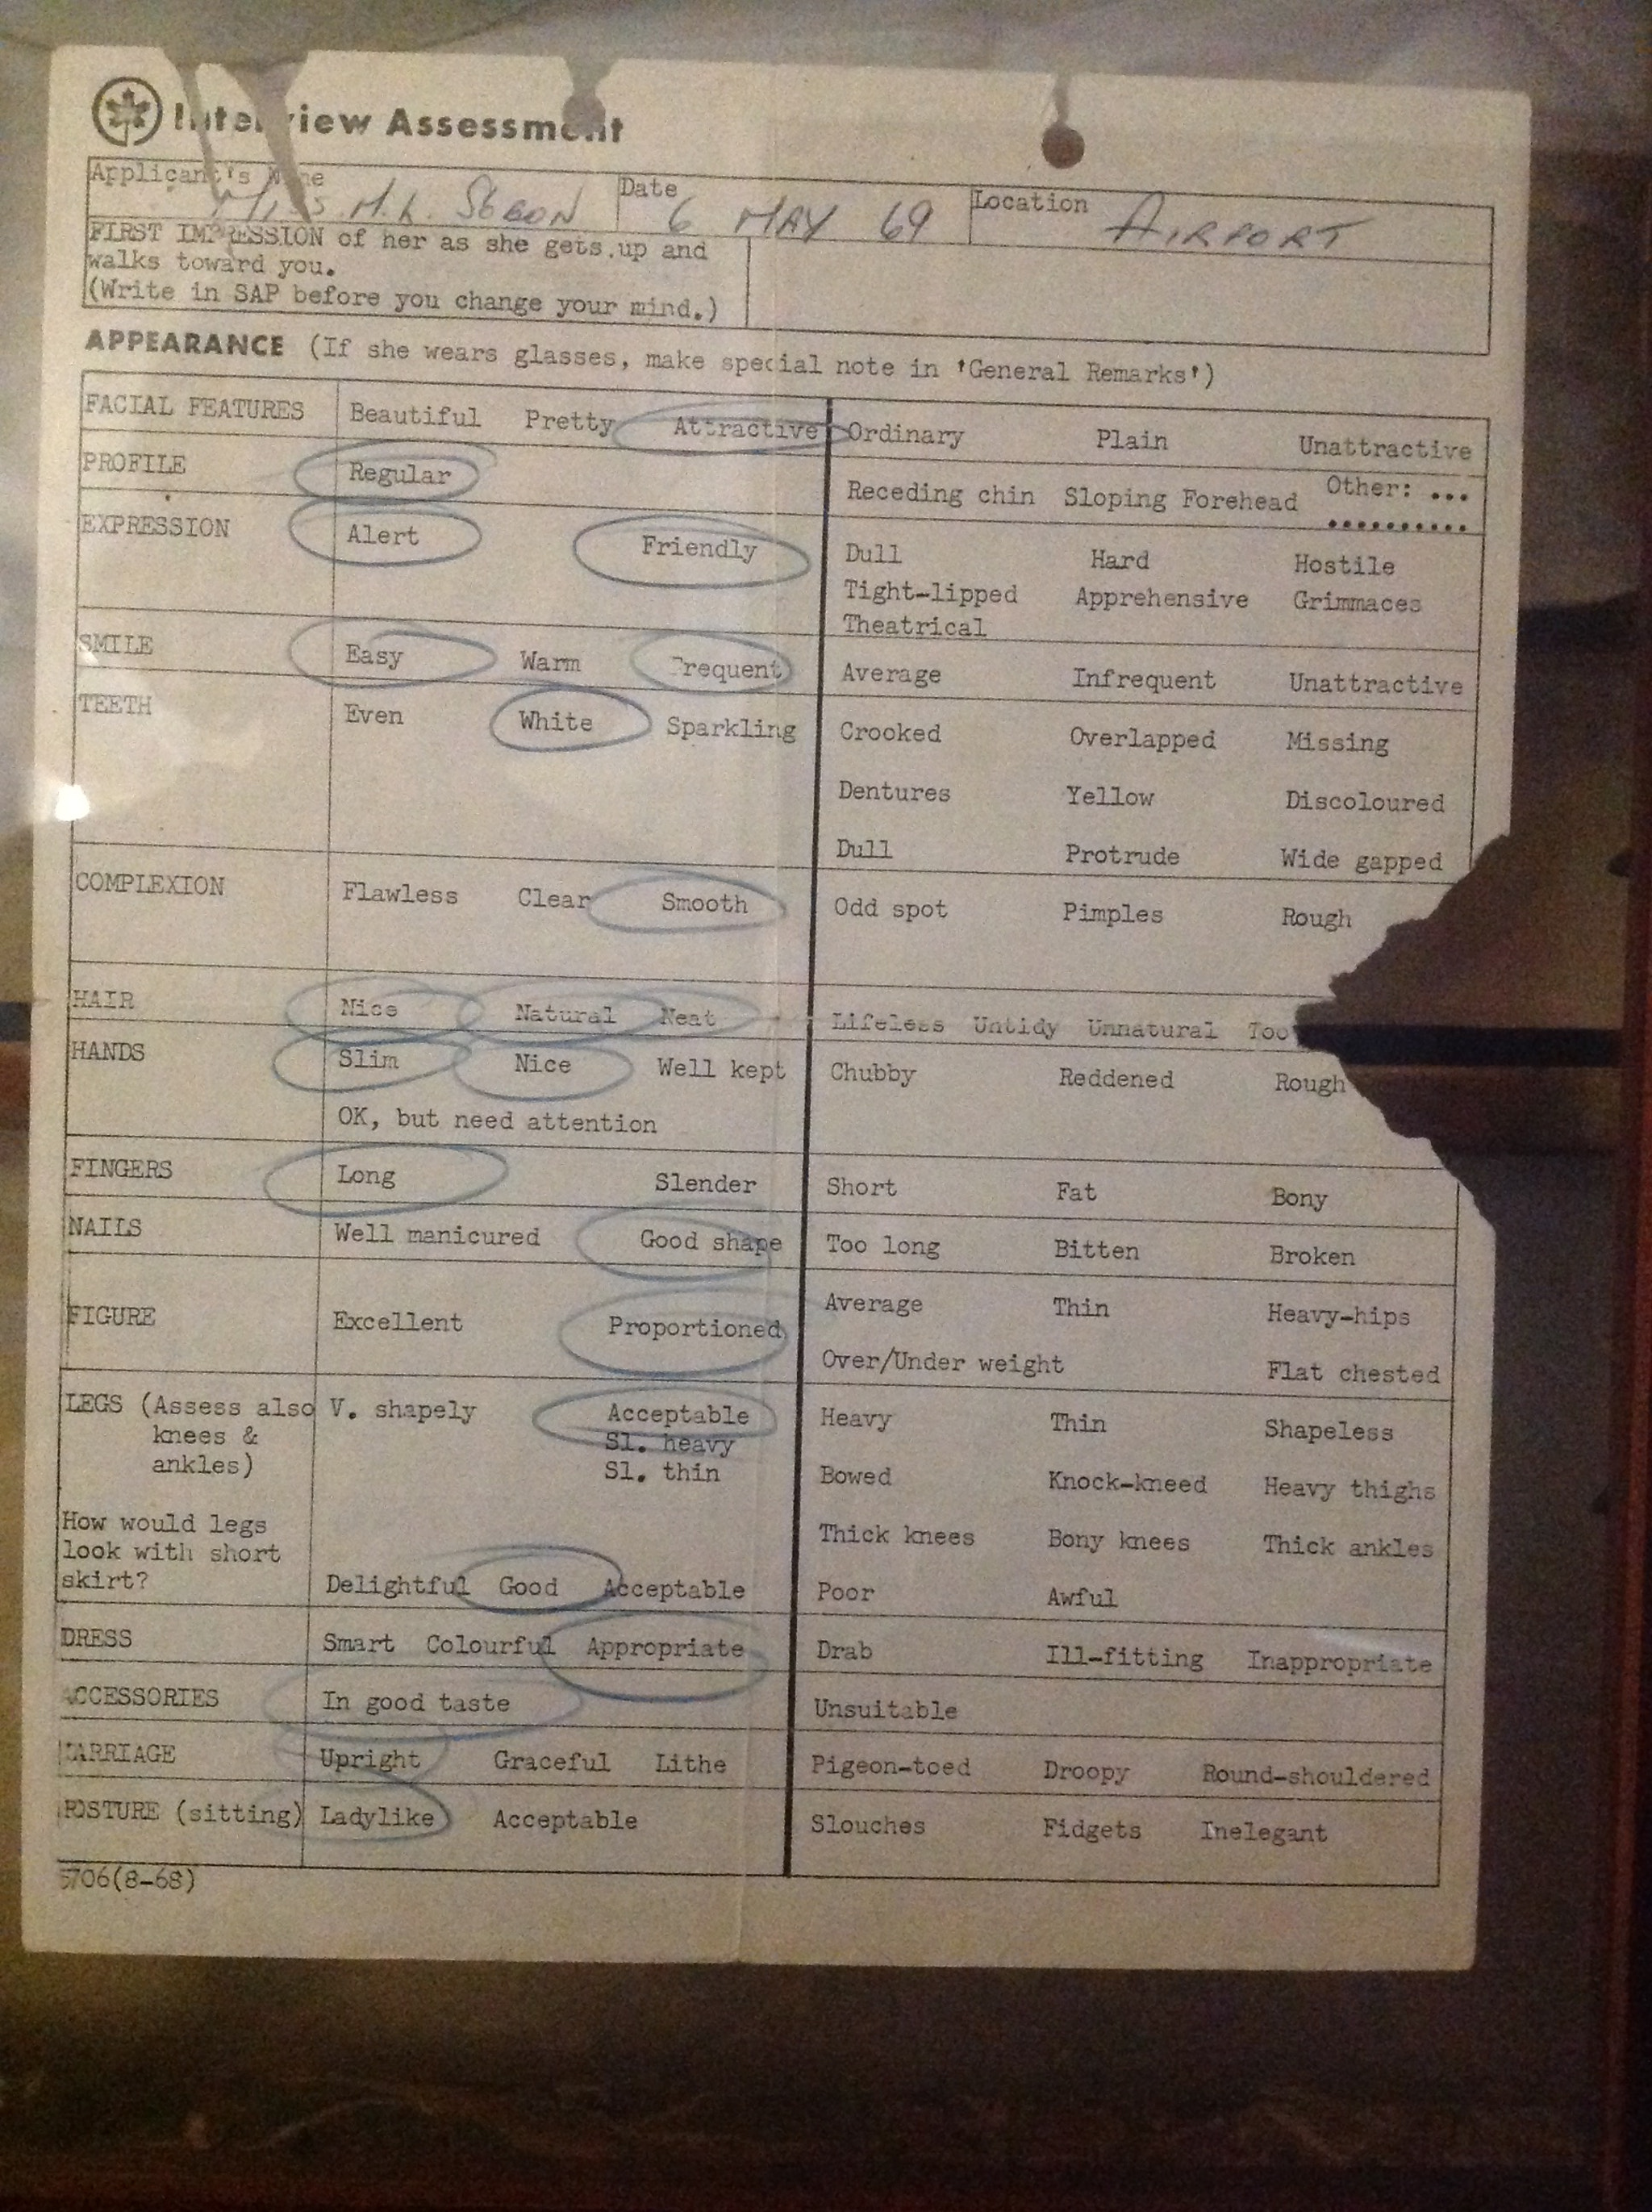 Interview Assessment
Applicant's Name Date Location
Miss. M. L. 6 MAY 69 AIRPORT
FIRST IMPRESSION of her as she gets up and
walks toward you.
(Write in SAP before you change your mind.)
APPEARANCE (If she wears glasses, make special note in 'General Remarks')
FACIAL FEATURES Beautiful Pretty Attractive Ordinary Plain Unattractive
PROFILE Regular Receding chin Sloping Forehead Other: ...
..........
EXPRESSION Alert Friendly Dull Hard Hostile
Tight-lipped Apprehensive Grimmaces
Theatrical
SMILE Easy Warm Frequent Average Infrequent Unattractive
TEETH Even White Sparkling Crooked Overlapped Missing
Dentures Yellow Discoloured
Dull Protrude Wide gapped
COMPLEXION Flawless Clear Smooth Odd spot Pimples Rough
HAIR Nice Natural Neat Lifeless Untidy Unnatural Too
HANDS Slim Nice Well kept Chubby Reddened Rough
OK, but need attention
FINGERS Long Slender Short Fat Bony
NAILS Well manicured Good shape Too long Bitten Broken
FIGURE Excellent Proportioned Average Thin Heavy-hips
Over/Under weight Flat chested
LEGS (Assess also V. shapely Acceptable Heavy Thin Shapeless
knees & Sl. heavy
ankles) Sl. thin Bowed Knock-kneed Heavy thighs
How would legs
look with short Thick knees Bony knees Thick ankles
skirt? Delightful Good Acceptable Poor Awful
DRESS Smart Colourful Appropriate Drab Ill-fitting Inappropriate
ACCESSORIES In good taste Unsuitable
CARRIAGE Upright Graceful Lithe Pigeon-toed Droopy Round-shouldered
POSTURE (sitting) Ladylike Acceptable Slouches Fidgets Inelegant
5706(8-68)